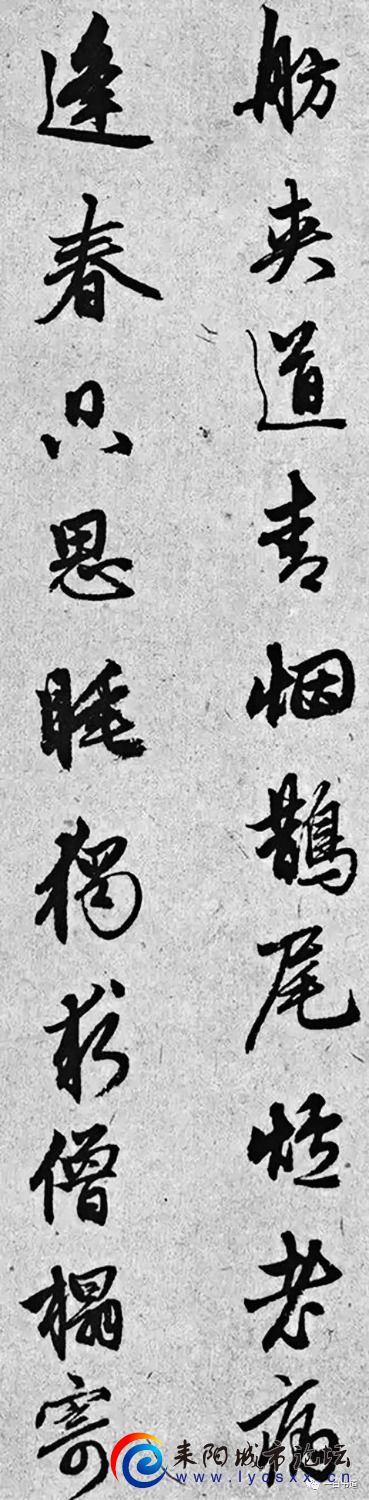 舫夾道青烟鵲尾炉老病
逢春只思睡獨求僧榻寄
耒阳城市论坛
www.lycsxx.cn